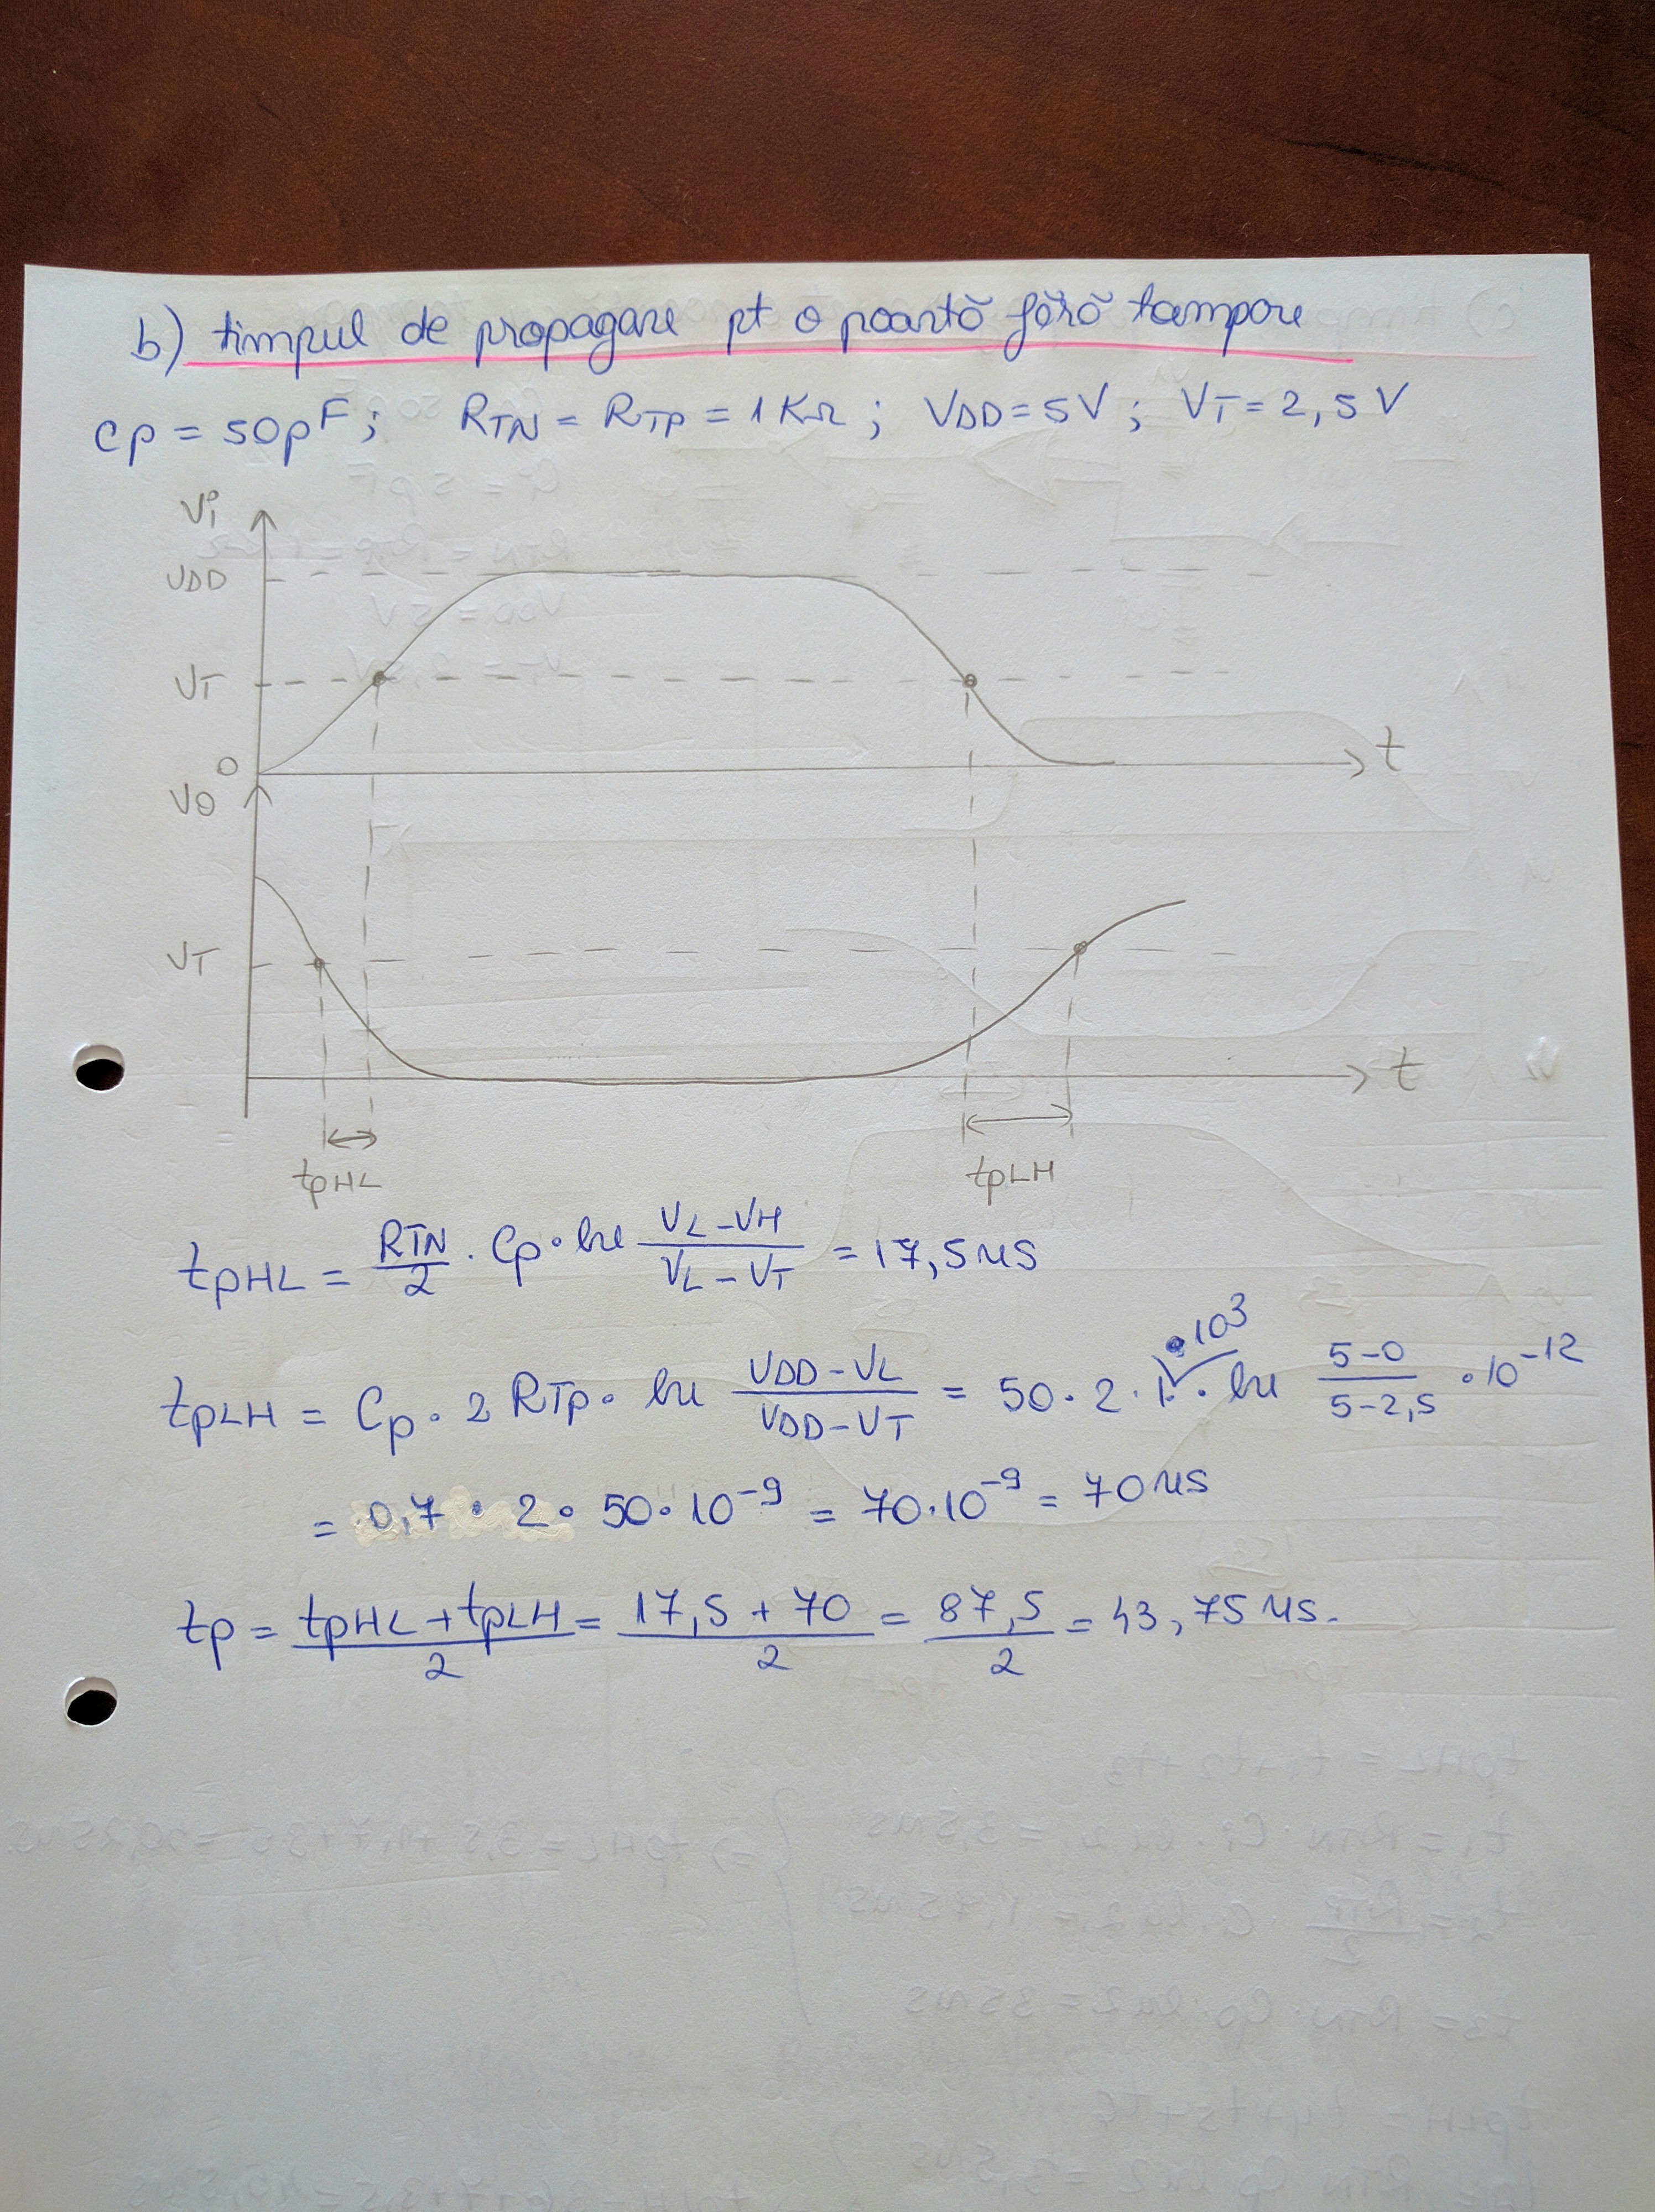 b) timpul de propagare pt o poartă fără tampon
Cp = 50pF; RTN = RTP = 1KΩ; VDD = 5V; VT = 2,5V
Vi
VDD
VT
0
t
VO
VT
t
tpHL tpLH
tpHL = RTN/2 · Cp · ln (VL-VH)/(VL-VT) = 17,5 ns
tpLH = Cp · 2 RTP · ln (VDD-VL)/(VDD-VT) = 50 · 2 · 1 · 10^3 · ln (5-0)/(5-2,5) · 10^-12
= 0,7 · 2 · 50 · 10^-9 = 70 · 10^-9 = 70 ns
tp = (tpHL + tpLH)/2 = (17,5 + 70)/2 = 87,5/2 = 43,75 ns.